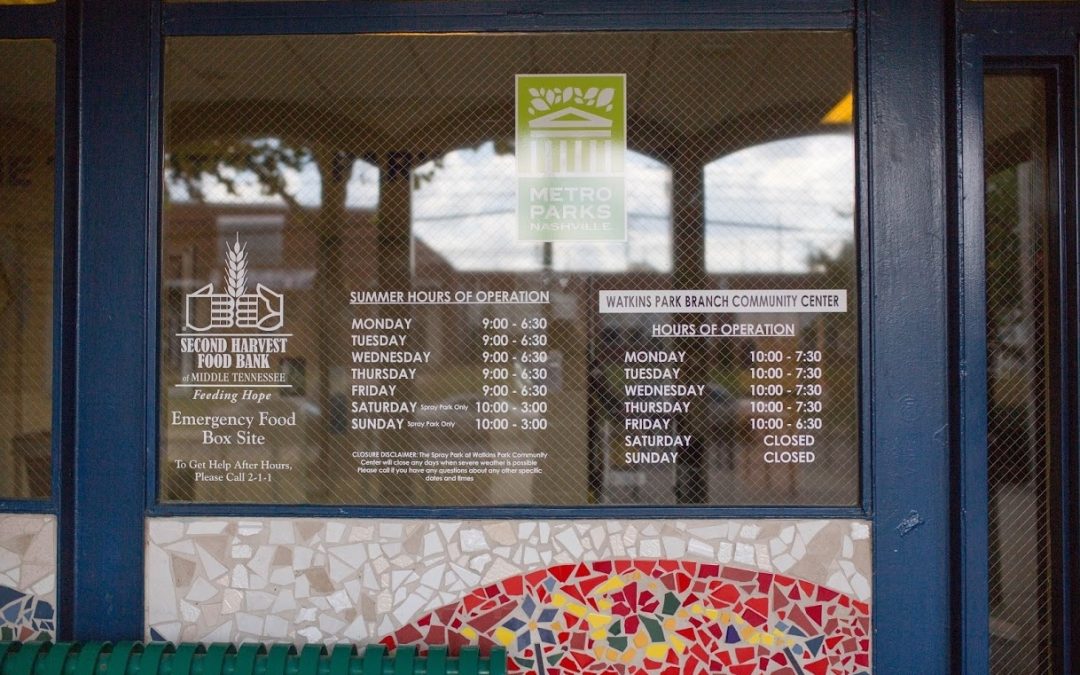 METRO
PARKS
NASHVILLE
SECOND HARVEST
FOOD BANK
of MIDDLE TENNESSEE
Feeding Hope
Emergency Food
Box Site
To Get Help After Hours,
Please Call 2-1-1
SUMMER HOURS OF OPERATION
MONDAY 9:00 - 6:30
TUESDAY 9:00 - 6:30
WEDNESDAY 9:00 - 6:30
THURSDAY 9:00 - 6:30
FRIDAY 9:00 - 6:30
SATURDAY Spray Park Only 10:00 - 3:00
SUNDAY Spray Park Only 10:00 - 3:00
CLOSURE DISCLAIMER: The Spray Park at Watkins Park Community
Center will close any days when severe weather is possible
Please call if you have any questions about any other specific
dates and times
WATKINS PARK BRANCH COMMUNITY CENTER
HOURS OF OPERATION
MONDAY 10:00 - 7:30
TUESDAY 10:00 - 7:30
WEDNESDAY 10:00 - 7:30
THURSDAY 10:00 - 7:30
FRIDAY 10:00 - 6:30
SATURDAY CLOSED
SUNDAY CLOSED